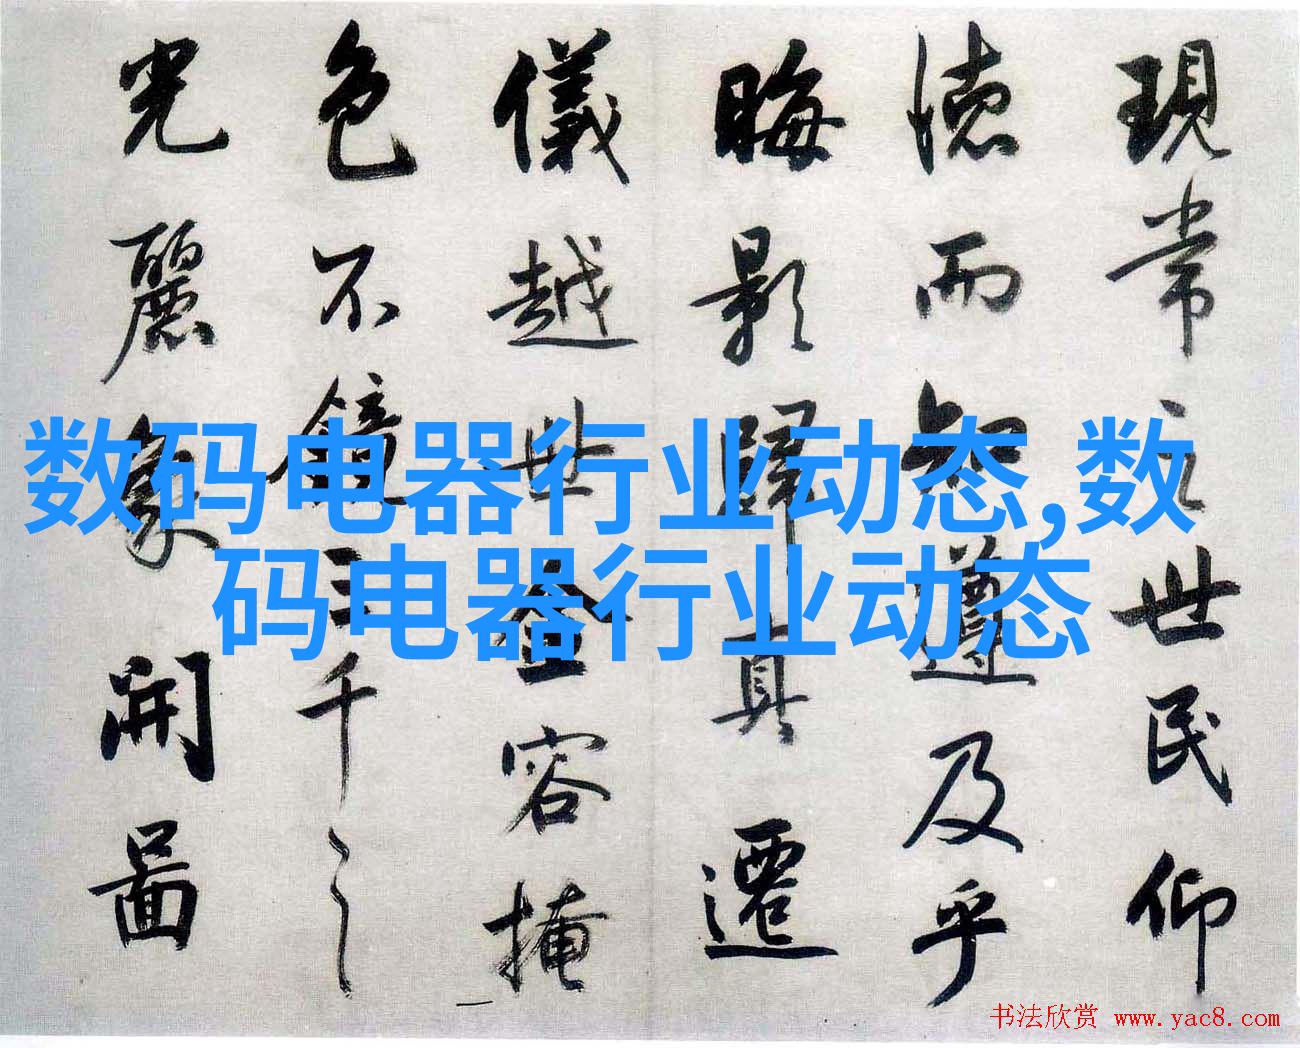 現常之世民仰
德而知遵及乎
晦影歸真遷
儀越世金容掩
色不鏡三千之
光麗象開圖
数码电器行业动态,数
码电器行业动态
书法欣赏 www.yac8.com